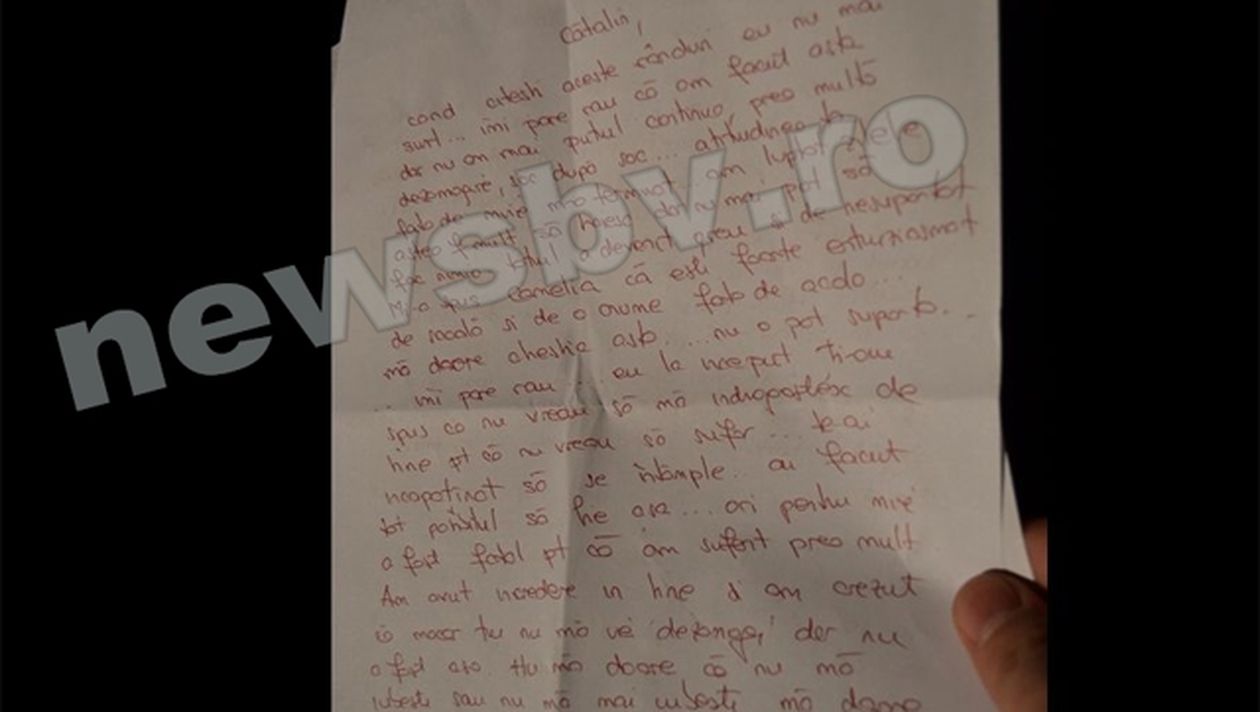 Cătalin,
cand citesti aceste rânduri eu nu mai
sunt... imi pare rau că am facut asta
dar nu am mai putut continua, prea multă
dezamagire, soc după soc... atitudinea ta
fata de mine m-a terminat am luptat
mult să dar nu mai pot să
fac nimic totul a devenit greu si de nesuportat
Mi-a spus Camelia că esti foarte entuziasmat
de scoală si de o anume fata de acolo...
mă doare chestia asta.... nu o pot suporta...
.. imi pare rau... eu la inceput ti-am
spus ca nu vreau să mă indragostesc de
tine pt că nu vreau să sufar... te-ai
incapatinat să se intâmple.. ai facut
tot posibilul să fie asa... ori pentru mine
a fost fatal pt că am suferit prea mult.
Am avut incredere in tine si am crezut
că macar tu nu mă vei dezamagi, dar nu
a fost asa. mă doare că nu mă
iubesti sau nu mă mai iubesti mă doare
newsbv.ro